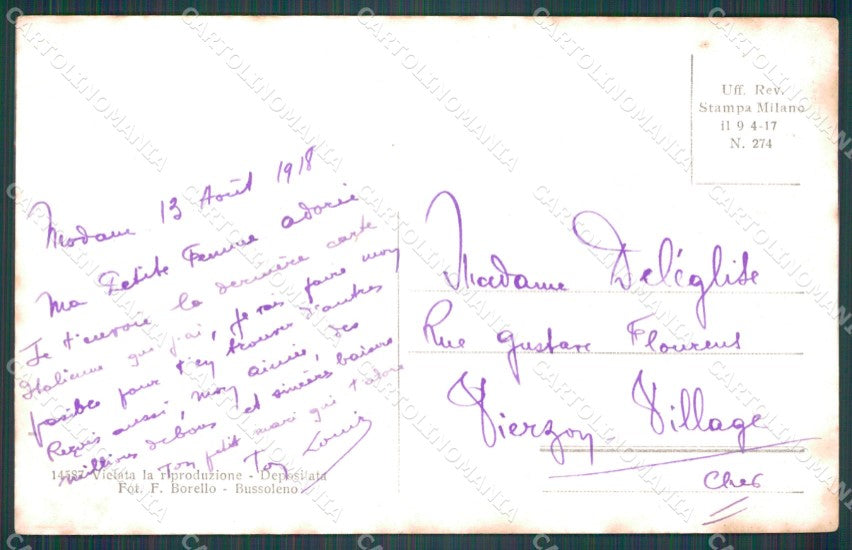 Modane 13 Août 1918
Ma Petite Femme adorée
Je t'envoie la dernière carte
Italienne que j'ai, je vais faire mon
possible pour t'en trouver d'autres
Reçois aussi, mon aimée, des
millions de bons et sincères baisers
Ton petit mari qui t'adore
Ton Louis
14587 Vietata la riproduzione - Depositata
Fot. F. Borello - Bussoleno
Uff. Rev.
Stampa Milano
il 9 4-17
N. 274
Madame Deléglise
Rue Gustave Flourens
Vierzon Village
Cher
CARTOLINOMANIA